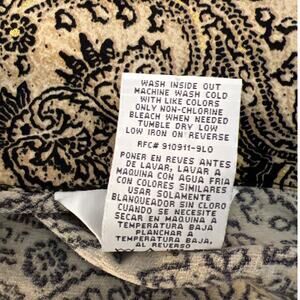 WASH INSIDE OUT
MACHINE WASH COLD
WITH LIKE COLORS
ONLY NON-CHLORINE
BLEACH WHEN NEEDED
TUMBLE DRY LOW
LOW IRON ON REVERSE
RFC# 910911-9LO
PONER EN REVES ANTES
DE LAVAR, LAVAR A
MAQUINA CON AGUA FRIA
CON COLORES SIMILARES
USAR SOLAMENTE
BLANQUEADOR SIN CLORO
CUANDO SE NECESITE
SECAR EN MAQUINA A
TEMPERATURA BAJA
PLANCHAR A
TEMPERATURA BAJA,
AL REVERSO